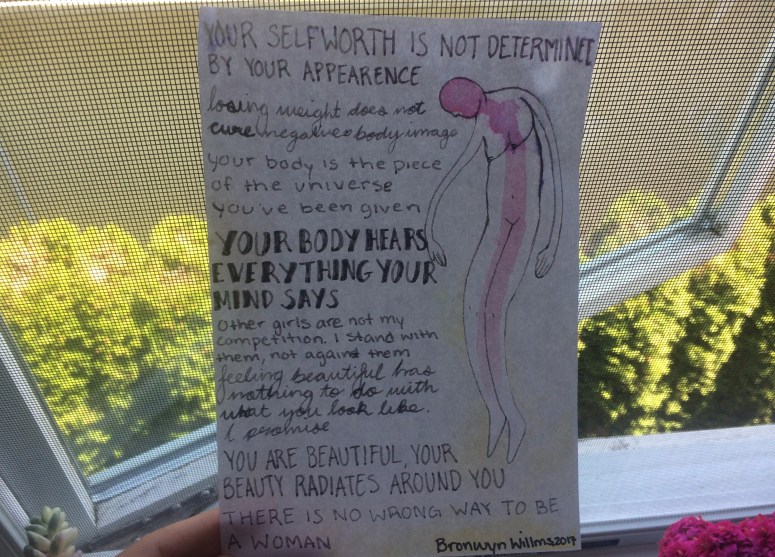 YOUR SELFWORTH IS NOT DETERMINED
BY YOUR APPEARENCE
losing weight does not
cure negative body image
your body is the piece
of the universe
you've been given
YOUR BODY HEARS
EVERYTHING YOUR
MIND SAYS
Other girls are not my
competition. I stand with
them, not against them
feeling beautiful has
nothing to do with
what you look like.
I promise
YOU ARE BEAUTIFUL, YOUR
BEAUTY RADIATES AROUND YOU
THERE IS NO WRONG WAY TO BE
A WOMAN
Bronwyn Willms 2017